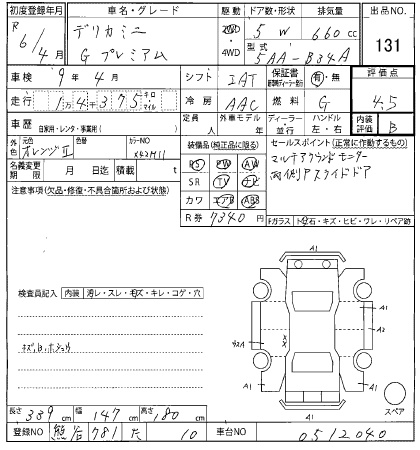 初度登録年月 車名・グレード 駆動 ドア数・形状 排気量 出品NO.
R 6/4月 デリカミニ G プレミアム 2WD・4WD 5 W 660cc 131
型式 5AA-B34A
車検 9年4月 シフト IAT 保証書 有・無 評価点 4.5
走行 1万4千375 キロ マイル 冷房 AAC 燃料 G
車歴 自家用・レンタ・事業用( ) 定員 人 外車モデル 年 ディーラー・並行 ハンドル 左・右 内装評価 B
外色 元色 オレンジⅡ カラーNO X42M11 装備品(純正品に限る) セールスポイント(正常に作動するもの)
PS PW AW マルチアラウンドモニター
名義変更期限 月 日迄 積載 t SR TV ナビ 両側Pスライドドア
注意事項(欠品・修復・不具合箇所および状態) カワ エアB ABS
R券 7340円
Fガラス トビ石・キズ・ヒビ・ワレ・リペア跡
A1
検査員記入 内装 汚レ・スレ・キズ・キレ・コゲ・穴
A1
A2
キズ、
A1 A1
スペア
A1
長さ 339cm 幅 147cm 高さ 180cm
登録NO 熊谷 781 た 10 車台NO 0512040